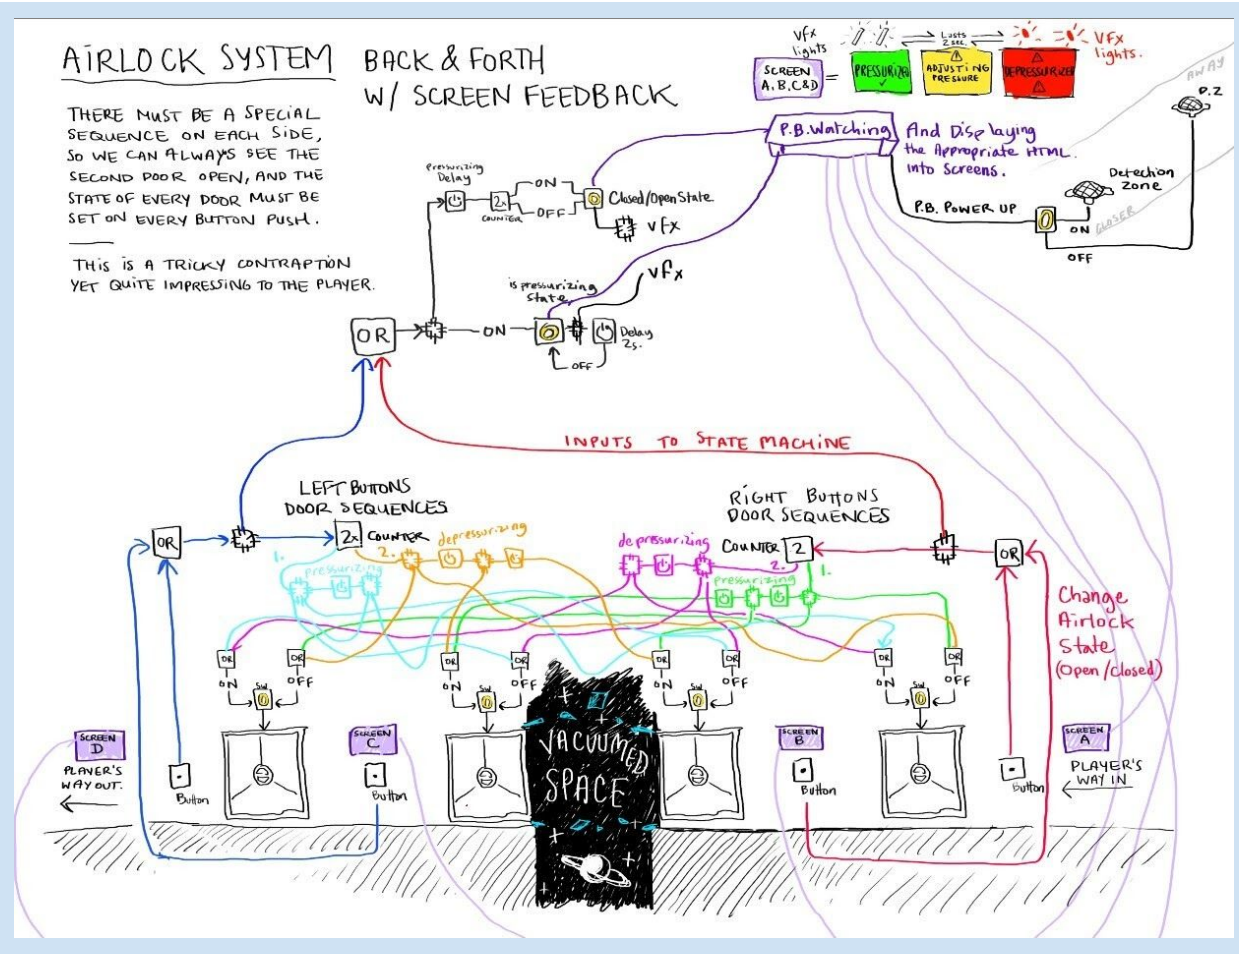 AIRLOCK SYSTEM
BACK & FORTH
W/ SCREEN FEEDBACK
THERE MUST BE A SPECIAL
SEQUENCE ON EACH SIDE,
SO WE CAN ALWAYS SEE THE
SECOND DOOR OPEN, AND THE
STATE OF EVERY DOOR MUST BE
SET ON EVERY BUTTON PUSH.
THIS IS A TRICKY CONTRAPTION
YET QUITE IMPRESSING TO THE PLAYER.
VFX
lights
SCREEN
A,B,C&D
=
PRESSURIZED
✓
Lasts
2 sec.
ADJUSTING
PRESSURE
DEPRESSURIZED
VFX
lights.
AWAY
D.Z
P.B. Watching
And Displaying
the Appropriate HTML.
into Screens.
Detection
zone
CLOSER
P.B. POWER UP
ON
OFF
Pressurizing
Delay
2x
COUNTER
ON
OFF
Closed/Open State
VFX
is pressurizing
State
VFX
OR
ON
Delay
2s.
OFF
INPUTS TO STATE MACHINE
LEFT BUTTONS
DOOR SEQUENCES
OR
2x
COUNTER
1.
2.
depressurizing
pressurizing
RIGHT BUTTONS
DOOR SEQUENCES
depressurizing
COUNTER
2
2.
1.
pressurizing
OR
Change
Airlock
State
(Open/closed)
OR
OR
OR
OR
OR
OR
OR
OR
ON
OFF
ON
OFF
ON
OFF
ON
OFF
SW
SW
SW
SW
SCREEN
D
PLAYER'S
WAY OUT.
Button
SCREEN
C
Button
VACUUMED
SPACE
SCREEN
B
Button
SCREEN
A
PLAYER'S
WAY IN
Button